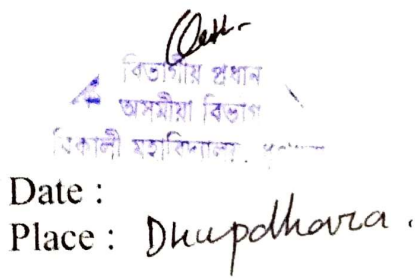 বিভাগীয় প্ৰধান
অসমীয়া বিভাগ
বিকালী মহাবিদ্যালয়,
Date :
Place : Dhupdhara.